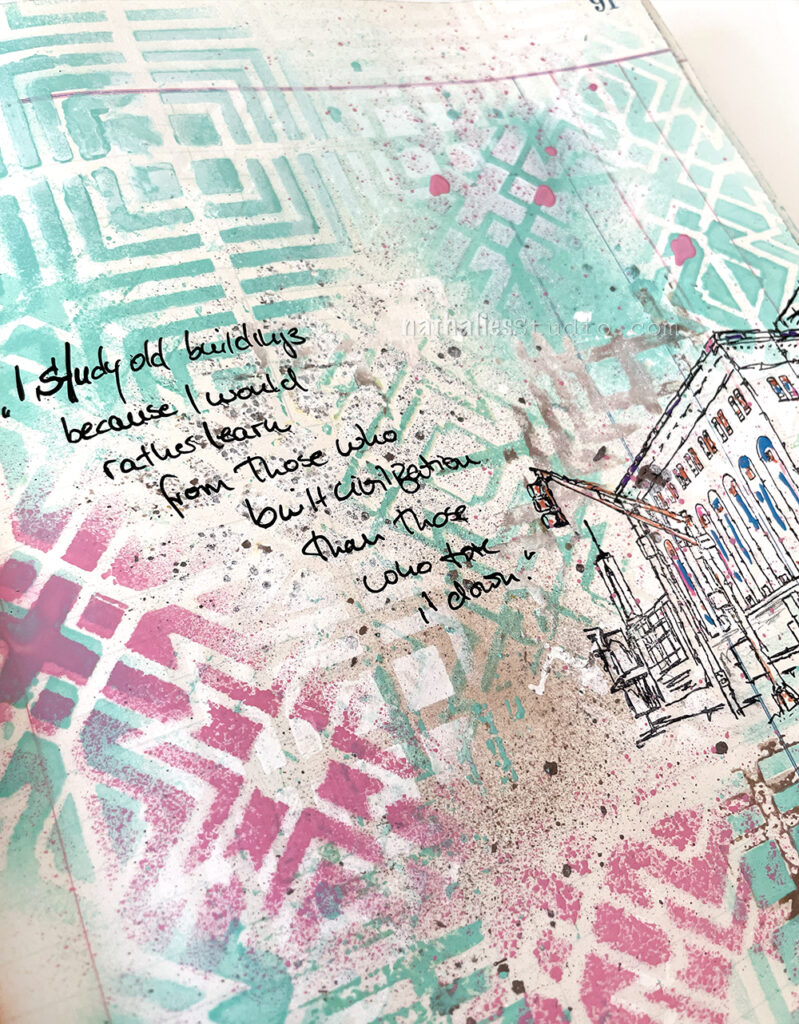 91
nathaliesstudio.com
"I study old buildings
because I would
rather learn
from those who
built civilization
than those
who tore
it down."